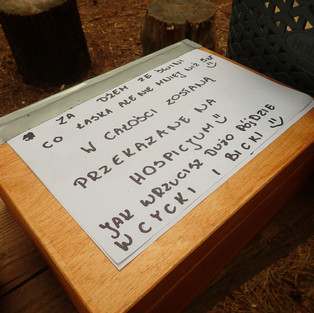 ZA DŻEM ZE ŚLIWKI
CO ŁASKA ALE NIE MNIEJ NIŻ 5zł
W CAŁOŚCI ZOSTANĄ
PRZEKAZANE NA
HOSPICJUM
JAK WRZUCISZ DUŻO PÓJDZIE
W CYCKI I BICKI